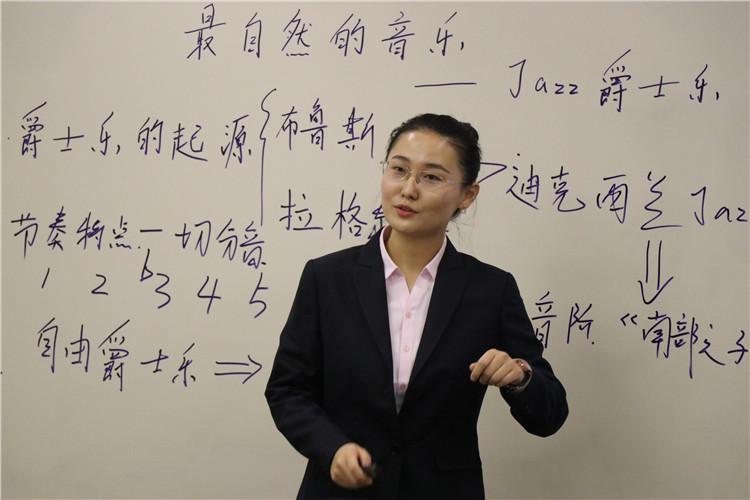 最自然的音乐
—— Jazz 爵士乐
爵士乐的起源 { 布鲁斯
拉格
迪克西兰 Jaz
节奏特点—切分音
1 2 b3 4 5
自由爵士乐 ⇒
音阶 “南部之子